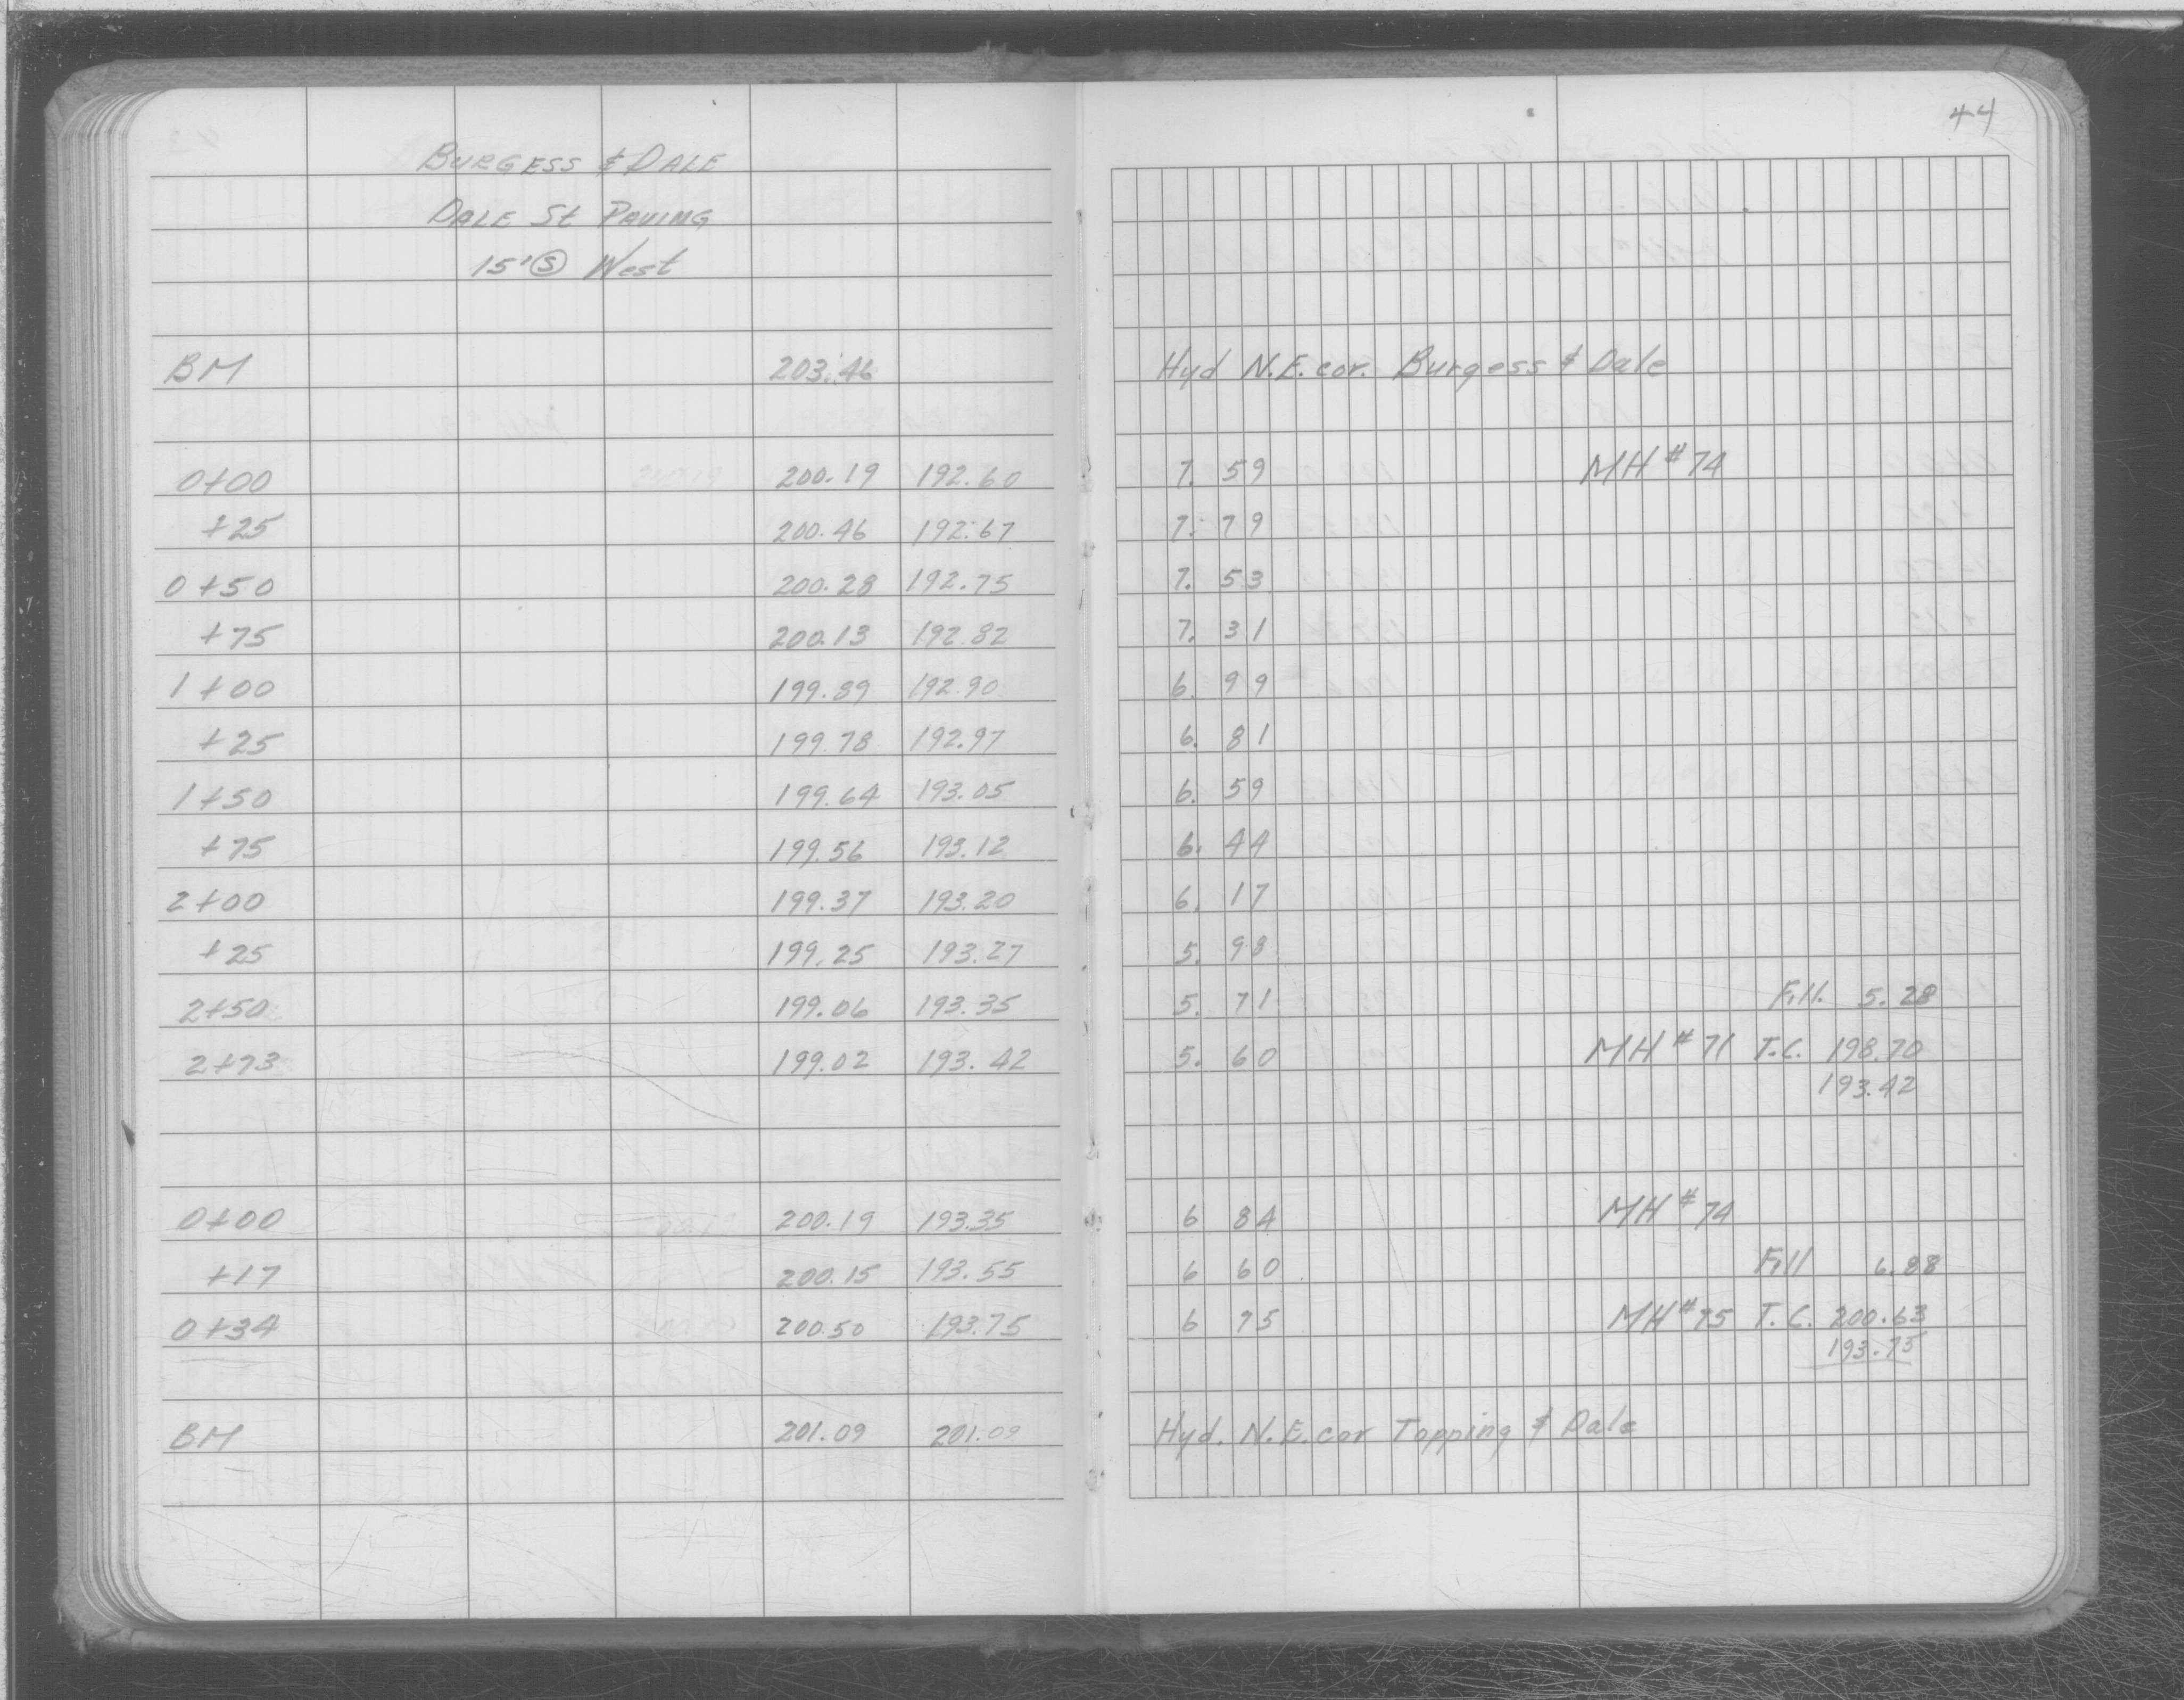 44
BURGESS & DALE
DALE St PAVING
15' Ⓢ West
BM 203.46 Hyd N.E. cor. Burgess & Dale
0+00 200.19 192.60 7.59 MH #74
+25 200.46 192.67 7.79
0+50 200.28 192.75 7.53
+75 200.13 192.82 7.31
1+00 199.89 192.90 6.99
+25 199.78 192.97 6.81
1+50 199.64 193.05 6.59
+75 199.56 193.12 6.44
2+00 199.37 193.20 6.17
+25 199.25 193.27 5.98
2+50 199.06 193.35 5.71 Fill. 5.28
2+73 199.02 193.42 5.60 MH #71 T.C. 198.70
193.42
0+00 200.19 193.35 6 84 MH #74
+17 200.15 193.55 6 60 Fill 6.88
0+34 200.50 193.75 6 75 MH #75 T.C. 200.63
193.75
BM 201.09 201.09 Hyd. N.E. cor Topping & Dale